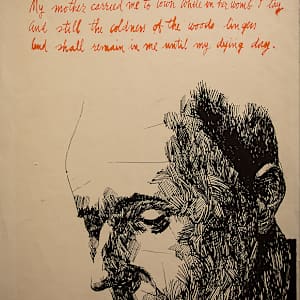 My mother carried me to town while in her womb I lay
And still the coldness of the woods lingers
And shall remain in me until my dying day.